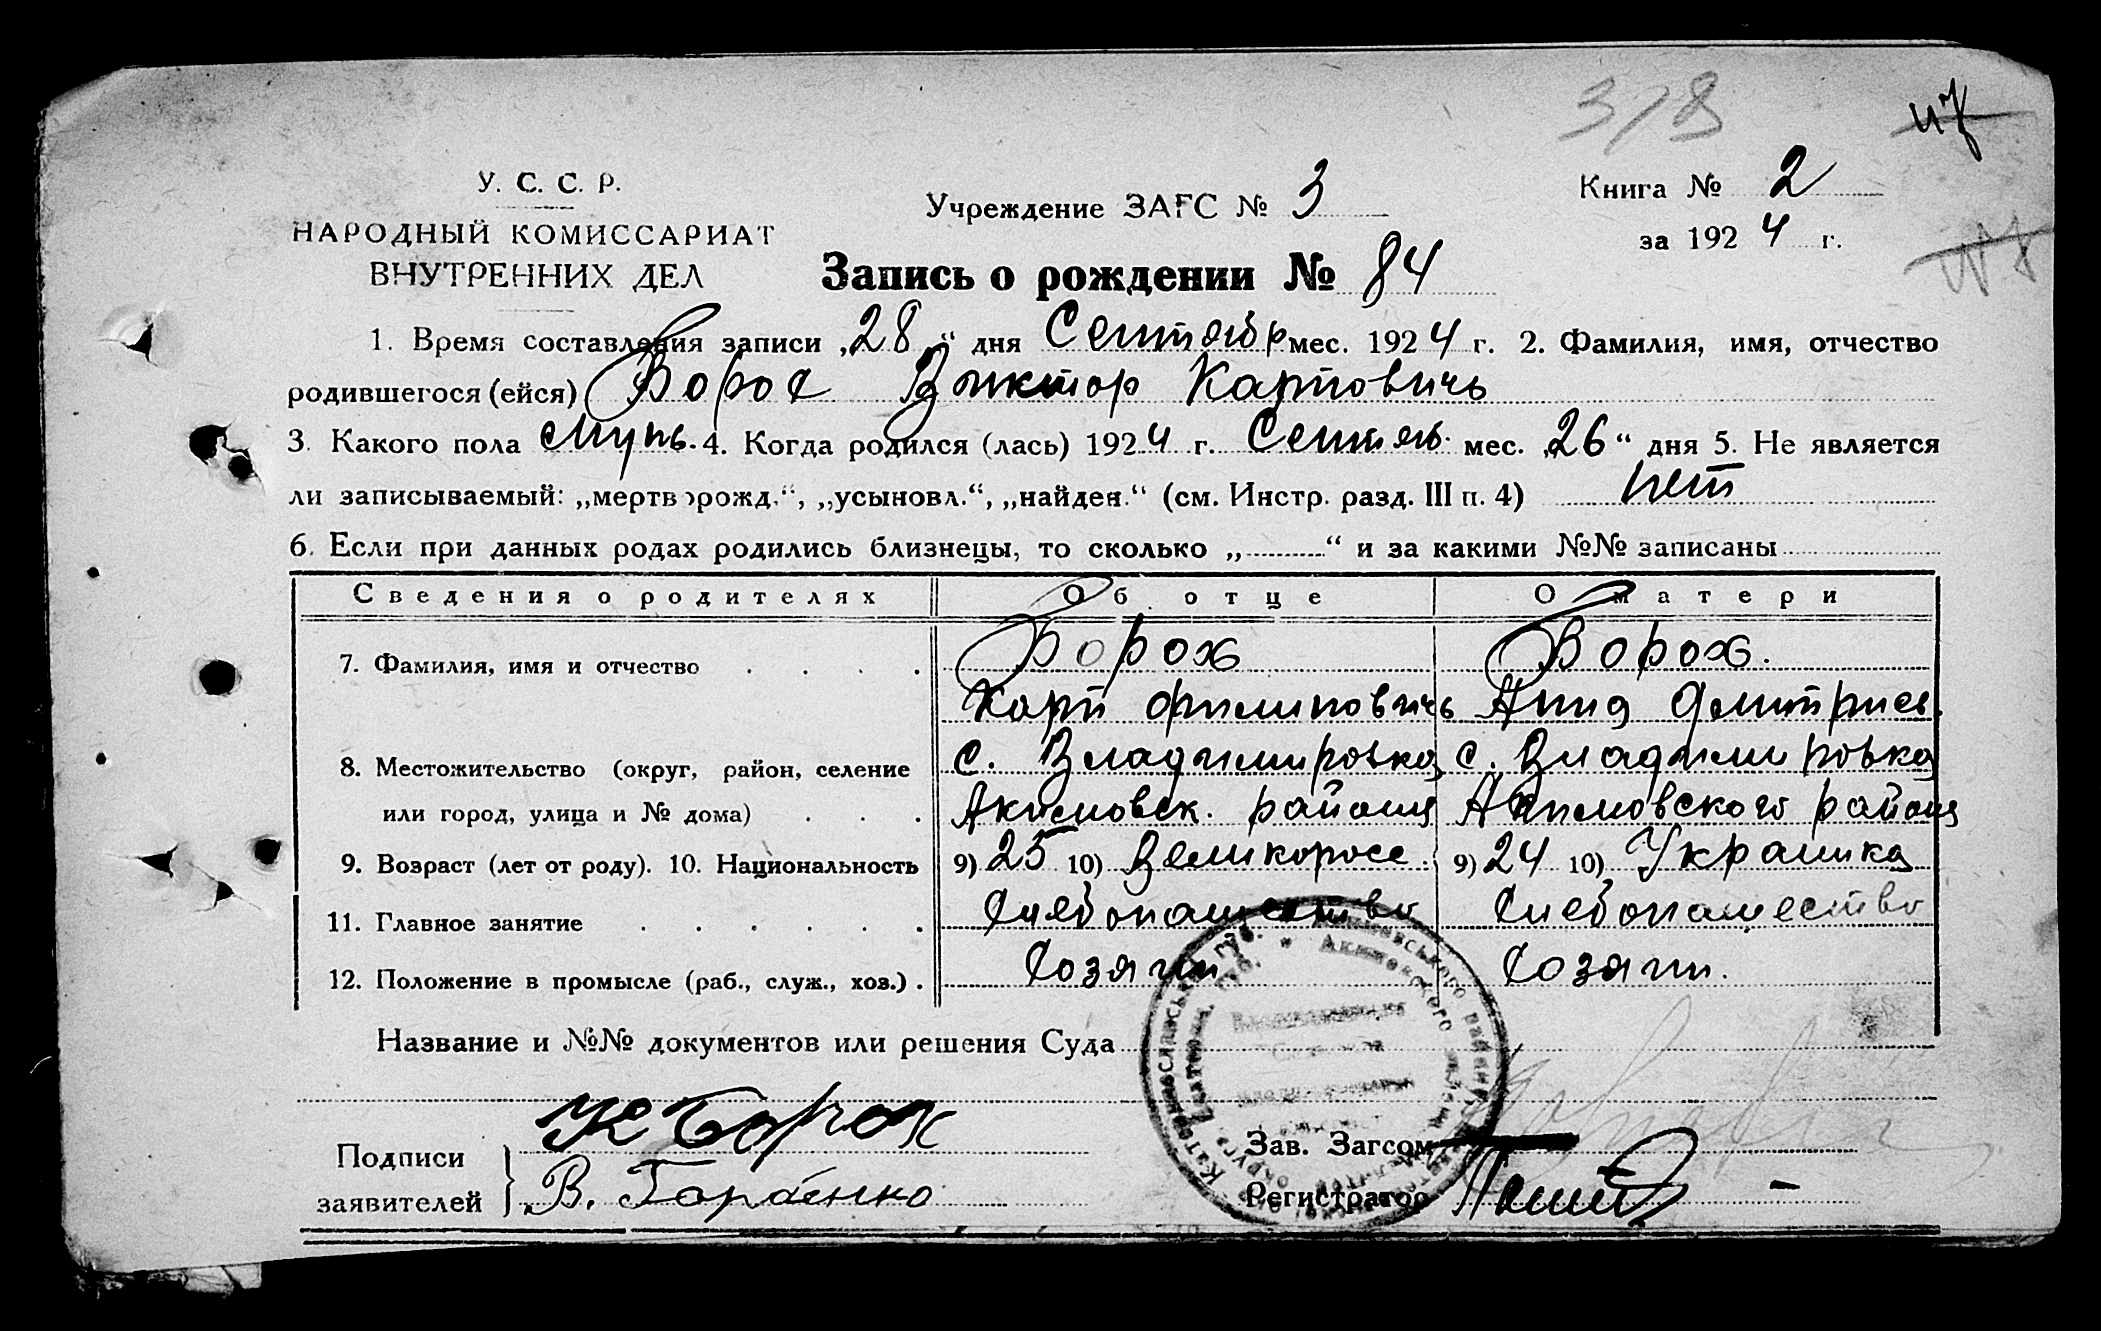 378
У. С. С. Р.
НАРОДНЫЙ КОМИССАРИАТ
ВНУТРЕННИХ ДЕЛ
Учреждение ЗАГС № 3
Книга № 2
за 1924 г.
Запись о рождении № 84
1. Время составления записи „28“ дня Сентября мес. 1924 г. 2. Фамилия, имя, отчество
родившегося (ейся) Ворох Виктор Карповичь
3. Какого пола муж. 4. Когда родился (лась) 1924 г. Сентяб. мес. „26“ дня 5. Не является
ли записываемый: „мертворожд.“, „усыновл.“, „найден.“ (см. Инстр. разд. III п. 4) нет
6. Если при данных родах родились близнецы, то сколько „ “ и за какими №№ записаны
Сведения о родителях Об отце О матери
7. Фамилия, имя и отчество . . . . Ворох Ворох.
Карп Филиповичь Анна Дмитриев.
8. Местожительство (округ, район, селение с. Владимировка с. Владимировка
или город, улица и № дома) . . . Акимовск. района Акимовского района
9. Возраст (лет от роду). 10. Национальность 9) 25 10) Великоросс. 9) 24 10) Украинка
11. Главное занятие . . . . . . Хлебопашество Хлебопашество
12. Положение в промысле (раб., служ., хоз.) . Хозяин Хозяин.
Название и №№ документов или решения Суда
Подписи К Ворох Зав. Загсом
заявителей В. Регистратор